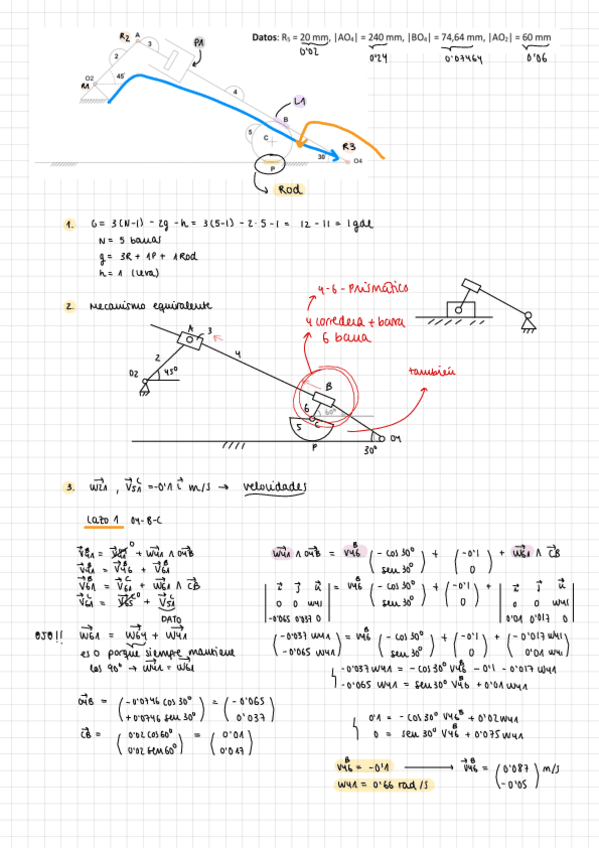 Datos: R₅ = 20 mm, |AO₄| = 240 mm, |BO₄| = 74,64 mm, |AO₂| = 60 mm
0'02 0'24 0'07464 0'06
R2 A 3 P1
2
O2 45° 4
R1
L1
B
5 C R3
30° O4
P
Rod
1. G = 3(N-1) - 2g - h = 3(5-1) - 2·5-1 = 12 - 11 = 1 gdl
N = 5 barras
g = 3R + 1P + 1Rod
h = 1 (leva)
4-6 - Prismático
2. Mecanismo equivalente
4 corredera + barra
6 barra
también
A 3
2 4
O2 45°
B
6 60°
5 C
P 30° O4
3. W21, V51^C = -0'1 i m/s → velocidades
Lazo 1 O4-B-C
V41^B = V41^O + W41 ∧ O4B
V41^B = V46^B + V61^B
V61^B = V61^C + W61 ∧ CB
V61^C = V65^C + V51^C
DATO
OJO!! W61 = W64 + W41
es 0 porque siempre mantiene
los 90° → W41 = W61
O4B = (-0'0746 cos 30° +0'0746 sen 30°) = (-0'065 0'037)
CB = (0'02 cos 60° 0'02 sen 60°) = (0'01 0'017)
W41 ∧ O4B = V46^B (-cos 30° sen 30°) + (-0'1 0) + W61 ∧ CB
| i j k 0 0 W41 -0'065 0'037 0 | = V46^B (-cos 30° sen 30°) + (-0'1 0) + | i j k 0 0 W41 0'01 0'017 0 |
(-0'037 W41 -0'065 W41) = V46^B (-cos 30° sen 30°) + (-0'1 0) + (-0'017 W41 0'01 W41)
-0'037 W41 = -cos 30° V46^B - 0'1 - 0'017 W41
-0'065 W41 = sen 30° V46^B + 0'01 W41
0'1 = -cos 30° V46^B + 0'02 W41
0 = sen 30° V46^B + 0'075 W41
V46^B = -0'1 → V46^B = (0'087 -0'05) m/s
W41 = 0'66 rad/s